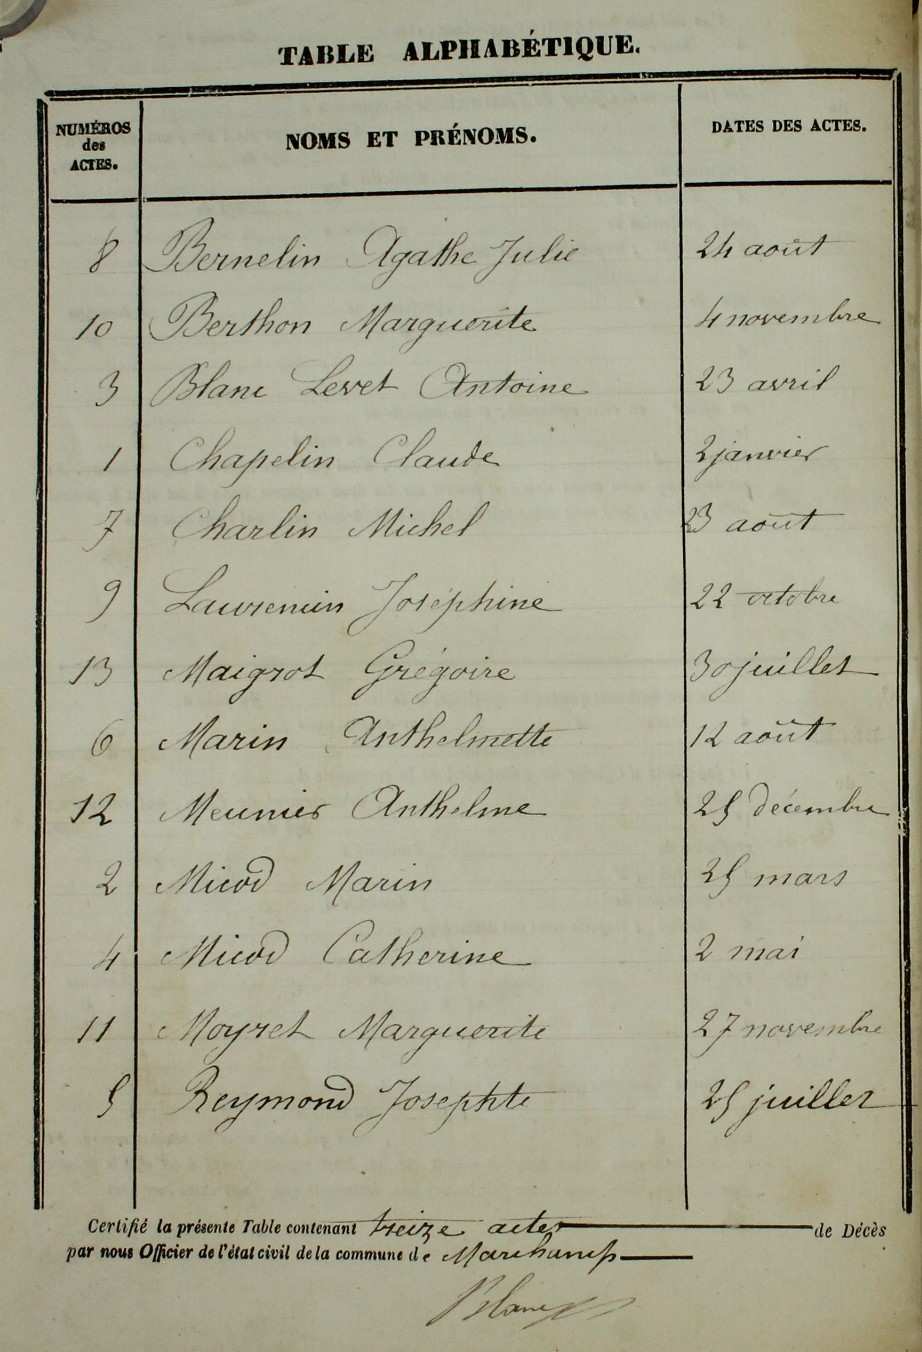 TABLE ALPHABÉTIQUE.
NUMÉROS des ACTES. NOMS ET PRÉNOMS. DATES DES ACTES.
8 Bernelin Agathe Julie 24 août
10 Berthon Marguerite 4 novembre
3 Blanc Levet Antoine 23 avril
1 Chapelin Claude 2 janvier
7 Charlin Michel 23 août
9 Laurencin Joséphine 22 octobre
13 Maigrot Grégoire 30 juillet
6 Marin Anthelmette 12 août
12 Meunier Anthelme 25 décembre
2 Micod Marin 25 mars
4 Micod Catherine 2 mai
11 Moyret Marguerite 27 novembre
5 Reymond Josephte 25 juillet
Certifié la présente Table contenant treize actes de Décès
par nous Officier de l'état civil de la commune de Marchamp
Blanc